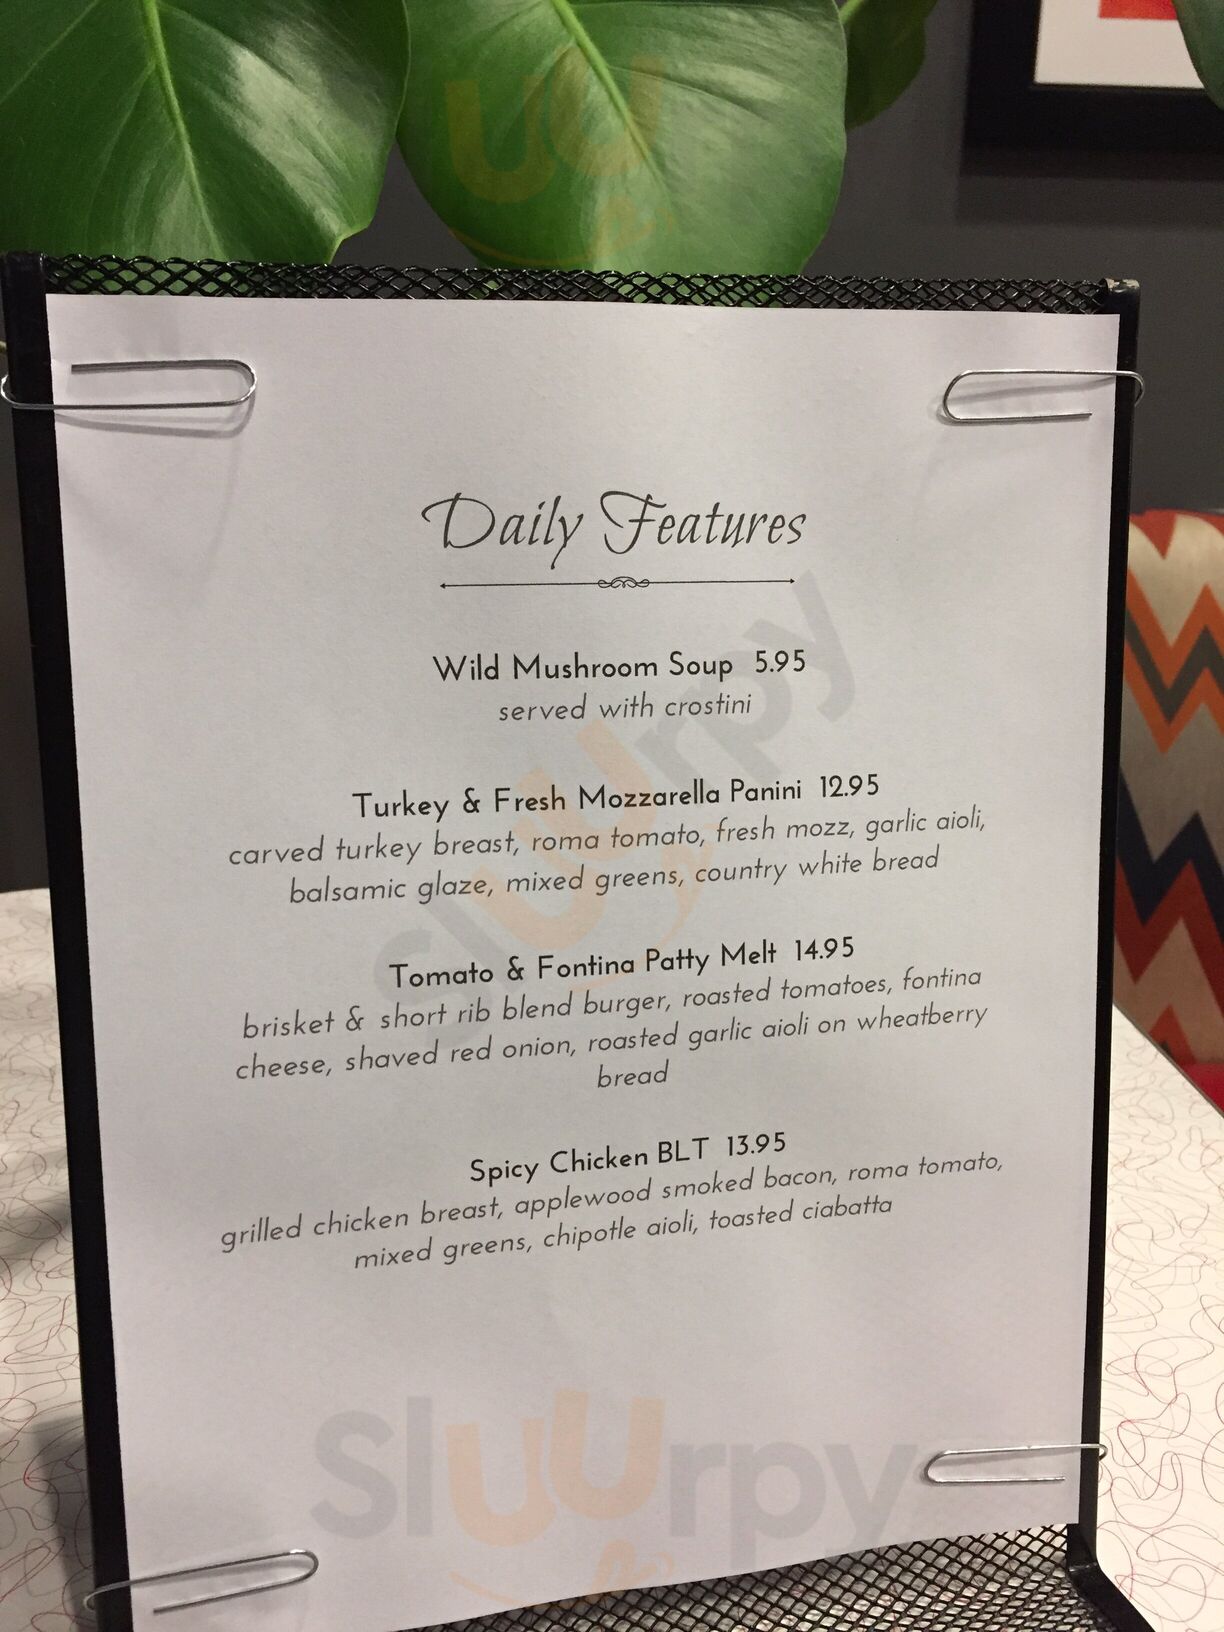 Daily Features
Wild Mushroom Soup 5.95
served with crostini
Turkey & Fresh Mozzarella Panini 12.95
carved turkey breast, roma tomato, fresh mozz, garlic aioli,
balsamic glaze, mixed greens, country white bread
Tomato & Fontina Patty Melt 14.95
brisket & short rib blend burger, roasted tomatoes, fontina
cheese, shaved red onion, roasted garlic aioli on wheatberry
bread
Spicy Chicken BLT 13.95
grilled chicken breast, applewood smoked bacon, roma tomato,
mixed greens, chipotle aioli, toasted ciabatta
Sluurpy
Sluurpy